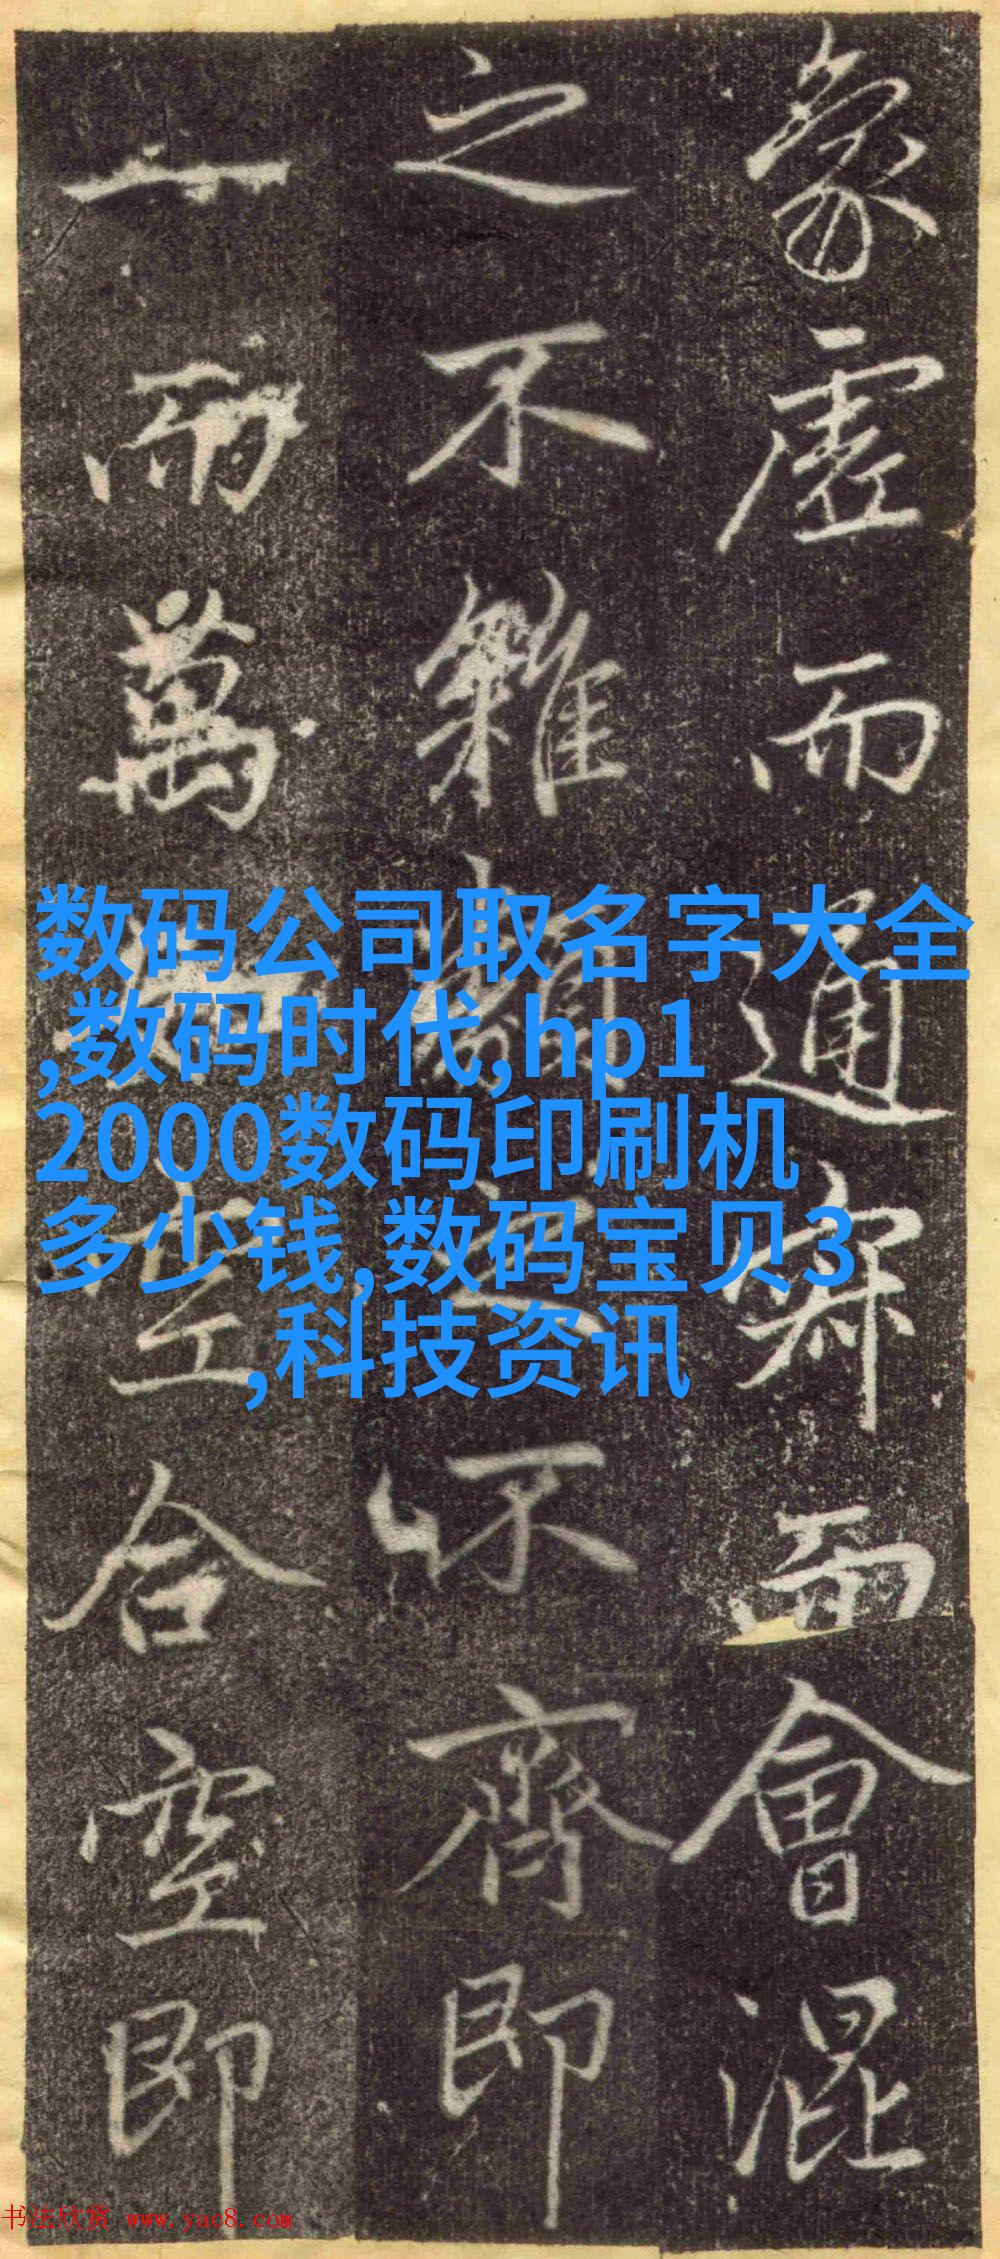 象虛而通寂而會混
之不雜之不齊即
一而萬空合空即
数码公司取名字大全
,数码时代,hp1
2000数码印刷机
多少钱,数码宝贝3
,科技资讯
书法欣赏 www.yac8.com